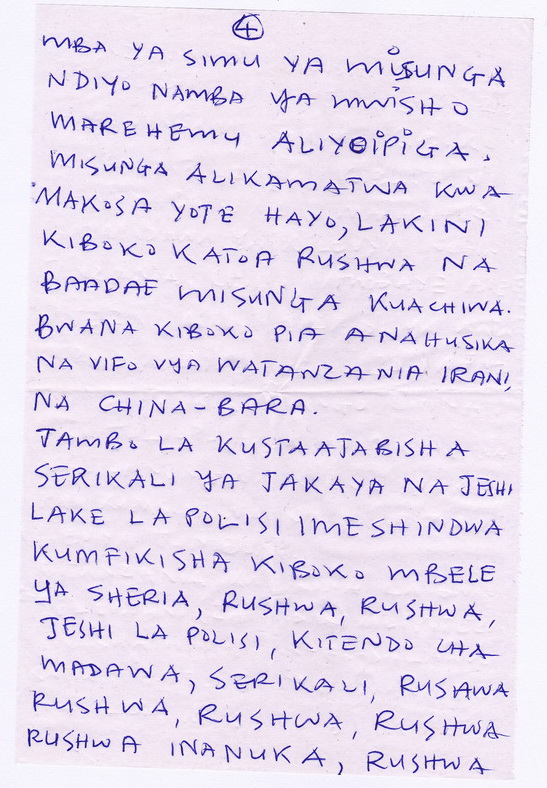 4
MBA YA SIMU YA MISUNGA
NDIYO NAMBA YA MWISHO
MAREHEMU ALIYOIPIGA.
MISUNGA ALIKAMATWA KWA
MAKOSA YOTE HAYO, LAKINI
KIBOKO KATOA RUSHWA NA
BAADAE MISUNGA KUACHIWA.
BWANA KIBOKO PIA ANAHUSIKA
NA VIFO VYA WATANZANIA IRANI,
NA CHINA-BARA.
JAMBO LA KUSTAAJABISHA
SERIKALI YA JAKAYA NA JESHI
LAKE LA POLISI IMESHINDWA
KUMFIKISHA KIBOKO MBELE
YA SHERIA, RUSHWA, RUSHWA,
JESHI LA POLISI, KITENDO CHA
MADAWA, SERIKALI, RUSAWA
RUSHWA, RUSHWA, RUSHWA
RUSHWA INANUKA, RUSHWA